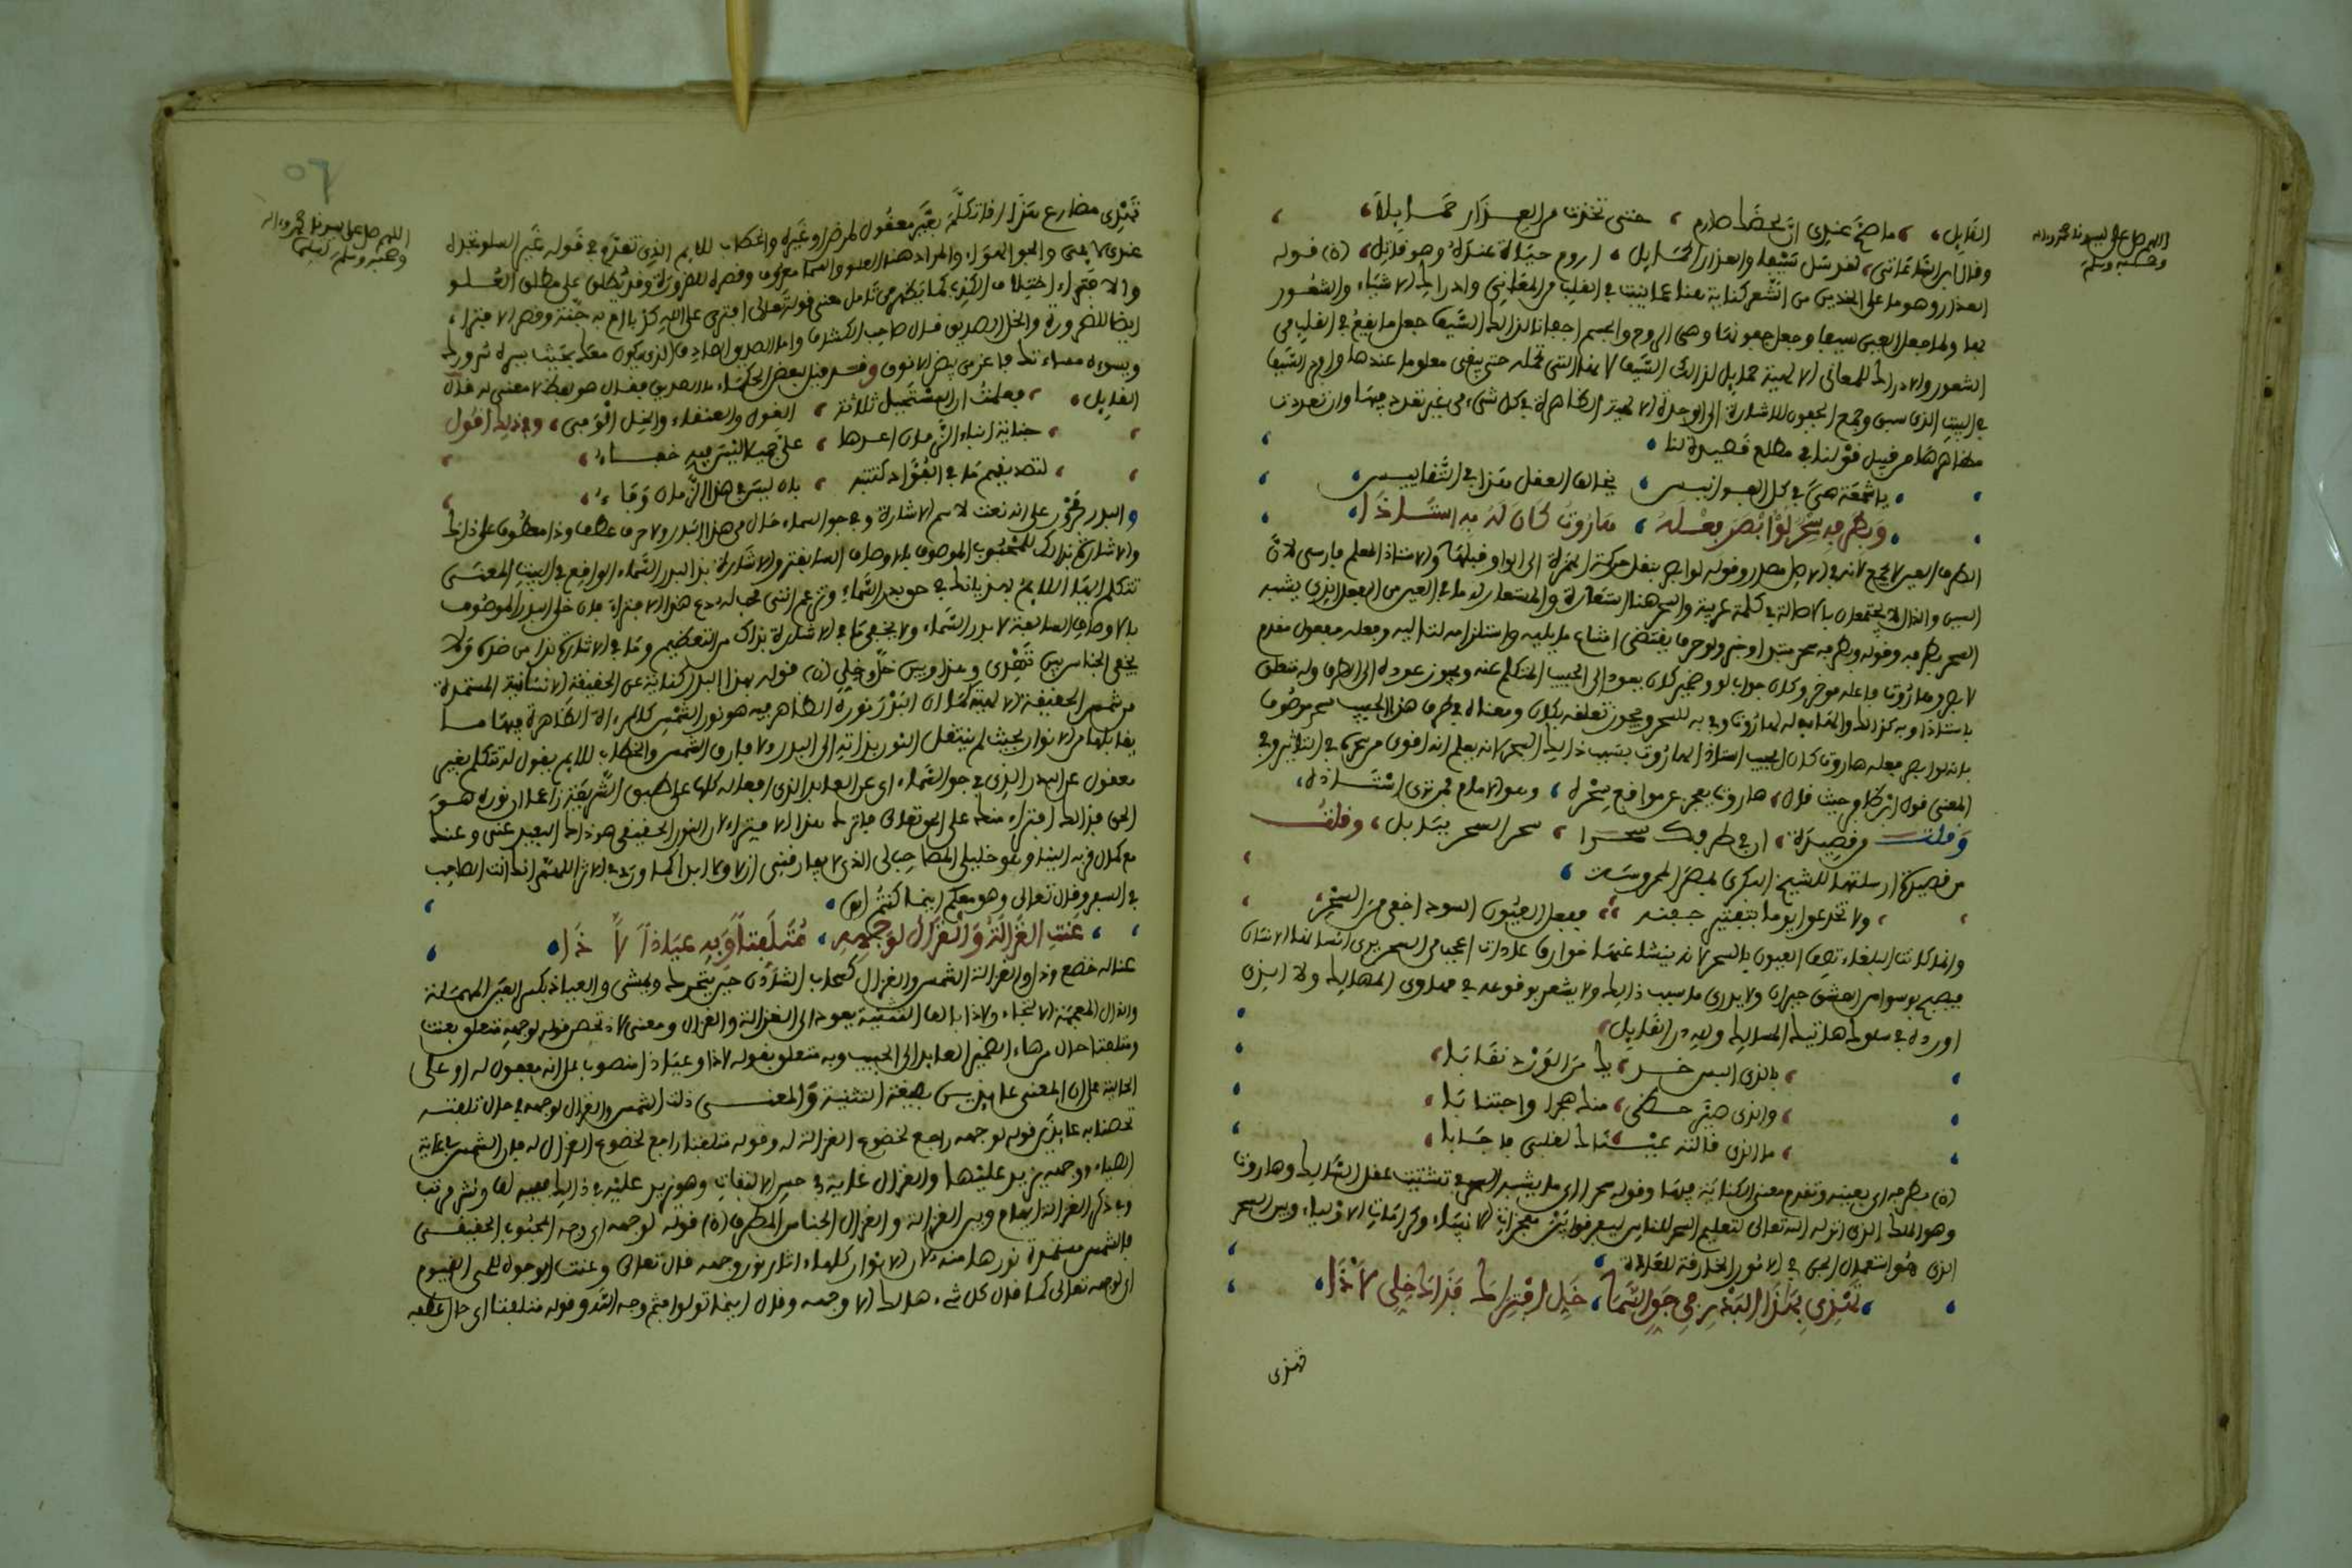 اللهم صل على سيدنا محمد وءاله
وصحبه وسلم
القايل، ما صح عندي ان لحظك صارم، حتى تخذت من العذار حمايلا
وقال ابن النقيب، لقد سل سيفا والعذار الحمايل، اروم حياة عنده وهو قاتل (ن) قوله
العذار وهو ما على الخدين من الشعر كناية هنا عما ينبت في القلب من المعاني وادراك الاشياء والشعور
بها ولما جعل العين سيفا وجعل جفونها وهي الروح والجسم اجفانا لذالك السيف جعل ما يقع في القلب من
الشعور والادراك للمعاني الالهية حمايل لذالك السيف لانها التي تحمله حتى يبقى معلوما عندها واراد السيف
في البيت الذي سبق وجمع الجفون للاشارة الى الوحدة الالهية الظاهرة في كل شيء من غير تعدد فيها وان تعددت
مظاهرها من قبيل قولنا في مطلع قصيدة لنا
يا شمعة هي في كل الفوانيس، يخالها العقل هذا في التقاييس
وبطرفه سحر لو ابصر فعله، هاروت كان له به استاذا
الطرف العين لا يجمع لانه في الاصل مصدر وقوله لو ابصر بنقل حركة الهمزة الى الواو قبلها والاستاذ المعلم فارسي لان
السين والذال لا يجتمعان بالاصالة في كلمة عربية والسحر هنا استعارة والمستعار له ما في العين من الفعل الذي يشبه
السحر بطرفه وقوله وبطرفه سحر مبتدا وخبر ولو حرف يقتضي امتناع ما يليه واستلزامه لتاليه وفعله مفعول مقدم
لابصر وهاروت فاعله موخر وكان جواب لو وضمير كان يعود الى الحبيب المتكلم عنه ويجوز عوده الى الطرف وله متعلق
باستاذا وبه كذالك والهاء في له لهاروت وفي به للسحر ويجوز تعلقه بكان ومعناه في طرف هذا الحبيب سحر موصوف
بانه لو ابصر فعله هاروت كان الحبيب استاذا لهاروت بسبب ذالك السحر لانه يعلم انه اقوى من سحره في التاثير وفي
المعنى قول الركام حيث قال، هاروت يعجز عن مواقع سحره، وهو الامام فمن ترى استاذه
وقلت من قصيدة، ان في طرفك سحرا، سحر السحر ببابل، وقلت
من قصيدة ارسلتها للشيخ البكري لمصر المحروسة
ولا تخدعوا يوما بتفتير جفنه، ففعل العيون السود اخفى من السحر
وانما كانت البلغاء تصف العيون بالسحر لانه ينشا عنها خوارق عادات اعجب من السحر يرى انسانها الانسان
فيصبح بوسواس العشق حيران ولا يدري ما سبب ذالك ولا يشعر بوقوعه في مهاوي المهالك ولا الذي
اورده في سلوك هاتيك المسالك ولله در القايل
بالذي البس خديك من الورد نقابا
والذي صير حظي منك هجرا واجتنابا
ما الذي قالته عيناك لقلبي فاجابا
(ن) بطرفه اي بعينه وتقدم معنى الكناية فيها وقوله سحر اي ما يشبه السحر في تشتيت عقل السالك وهاروت
وهو الملك الذي انزله الله تعالى لتعليم السحر للناس ليفرقوا بين معجزات الانبياء وكرامات الاولياء وبين السحر
الذي هو استعمال الجن في الامور الخارقة للعادة
تهذي بهذا البدر في جو السما، خل افتراك فذاك خلي لا ذا
تهذي
٥٦
اللهم صل على سيدنا محمد وءاله
وصحبه وسلم تسليما
تهذي مضارع هذا اذا تكلم بغير معقول لمرض او غيره والخطاب للايم الذي تقدم في قوله غير السلو تجده
عندي لايمي والجو الهواء والمراد هنا العلو والسما معروف وقصره للضرورة وقد يطلق على مطلق العلو
والافتراء اختلاق الكذب كما يظهر من تامل معنى قوله تعالى افترى على الله كذبا ام به جنة وقصر الافتراء
ايضا للضرورة والخل الصديق قال صاحب الكشاف واما الصديق الصادق الذي يكون معك بحيث يسره سرورك
ويسوءه مساءتك فاعز من بيض الانوق وقد قيل لبعض الحكماء ما الصديق فقال هو لفظ لا معنى له قال
القايل، فعلمت ان المستحيل ثلاثة، الغول والعنقاء والخل الوفي، وفي ذلك اقول
خيانة ابناء الزمان اعدها، على جهلا ليس فيه خفاء
لتصديقهم ما في الفؤاد كتبته، بان ليس في هذا الزمان وفاء
والبدر مجرور على انه نعت لاسم الاشارة وفي جو السماء حال من هذا البدر ولا حرف عطف وذا معطوف على ذاك
والاشارة بذاك للمحبوب الموصوف بالاوصاف السابقة والاشارة بذا لبدر السماء الواقع في البيت المعنى
تتكلم ايها اللايم بهذيانك في حق بدر السماء وتزعم انني محب له دع هذا الافتراء فان خلي البدر الموصوف
بالاوصاف السابقة لا بدر السماء ولا يخفى ما في الاشارة بذاك من التعظيم وما في الاشارة بذا من ضده ولا
يخفى الجناس بين تهذي وهذا وبين خل وخلي (ن) قوله بهذا البدر كناية عن الحقيقة الانسانية المستمدة
من شمس الحقيقة الالهية كما ان البدر نوره الظاهر فيه هو نور الشمس كالمرءاة الظاهرة فيها ما
يقابلها من الانوار بحيث لم ينتقل النور بذاته الى البدر ولا فارق الشمس والخطاب للايم يقول له تتكلم بغير
معقول عن البدر الذي في جو السماء اي عن العابد الذي افعاله كلها على طبق الشريعة زاعما ان نوره هو
الحق فذالك افتراء منك على الحق تعالى فاترك هذا الافتراء لان النور الحقيقي هو ذاك البعيد عني وعنك
مع كمال قربه الينا وهو خليلي المصاحب لي الذي لا يفارقني ازلا ولا ابدا كما ورد في الاثر اللهم انك انت الصاحب
في السفر وقال تعالى وهو معكم اينما كنتم (ه)
عنت الغزالة والغزال لوجهه، متلفتا وبه عياذا لاذا
عنا له خضع وذل والغزالة الشمس والغزال كسحاب الشادن حين يتحرك ويمشي والعياذ بكسر العين المهملة
والذال المعجمة الالتجاء ولاذا بالف التثنية يعود الى الغزالة والغزال ومعنى لاذ تحصن قوله لوجهه متعلق بعنت
ومتلفتا حال من هاء الضمير العايد الى الحبيب وبه متعلق بقوله لاذا وعياذا منصوب على انه مفعول له او على
الحالية على ان المعنى عايذين بصيغة التثنية والمعنى ذلت الشمس والغزال لوجهه في حال تلفته
تحصنا به عايذين قوله لوجهه راجع لخضوع الغزالة له وقوله متلفتا راجع لخضوع الغزال له فان الشمس غاية
الضياء ووجهه يزيد عليها والغزال غاية في حسن الالتفات وهو يزيد عليه في ذالك ففيه لف ونشر مرتب
وفي ذكر الغزالة ايهام وبين الغزالة والغزال الجناس المطرف (ن) قوله لوجهه اي وجه المحبوب الحقيقي
فالشمس مستمدة نورها منه لان الانوار كلها ءاثار نور وجهه قال تعالى وعنت الوجوه للحي القيوم
اي لوجهه تعالى كما قال كل شيء هالك الا وجهه وقال اينما تولوا فثم وجه الله وقوله متلفتا اي حال عطفه